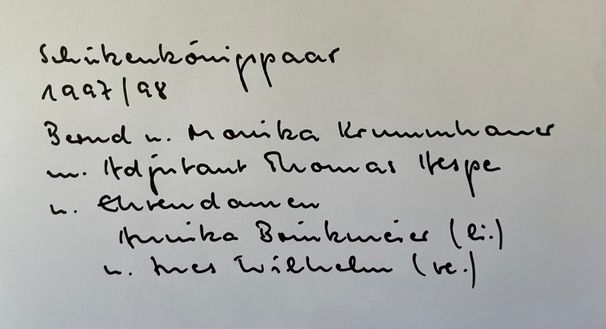 Schützenkönigspaar
1997/98
Bernd u. Monika Krummhauer
m. Adjutant Thomas Hespe
u. Ehrendamen
Annika Brinkmeier (li.)
u. Ines Wilhelm (re.)